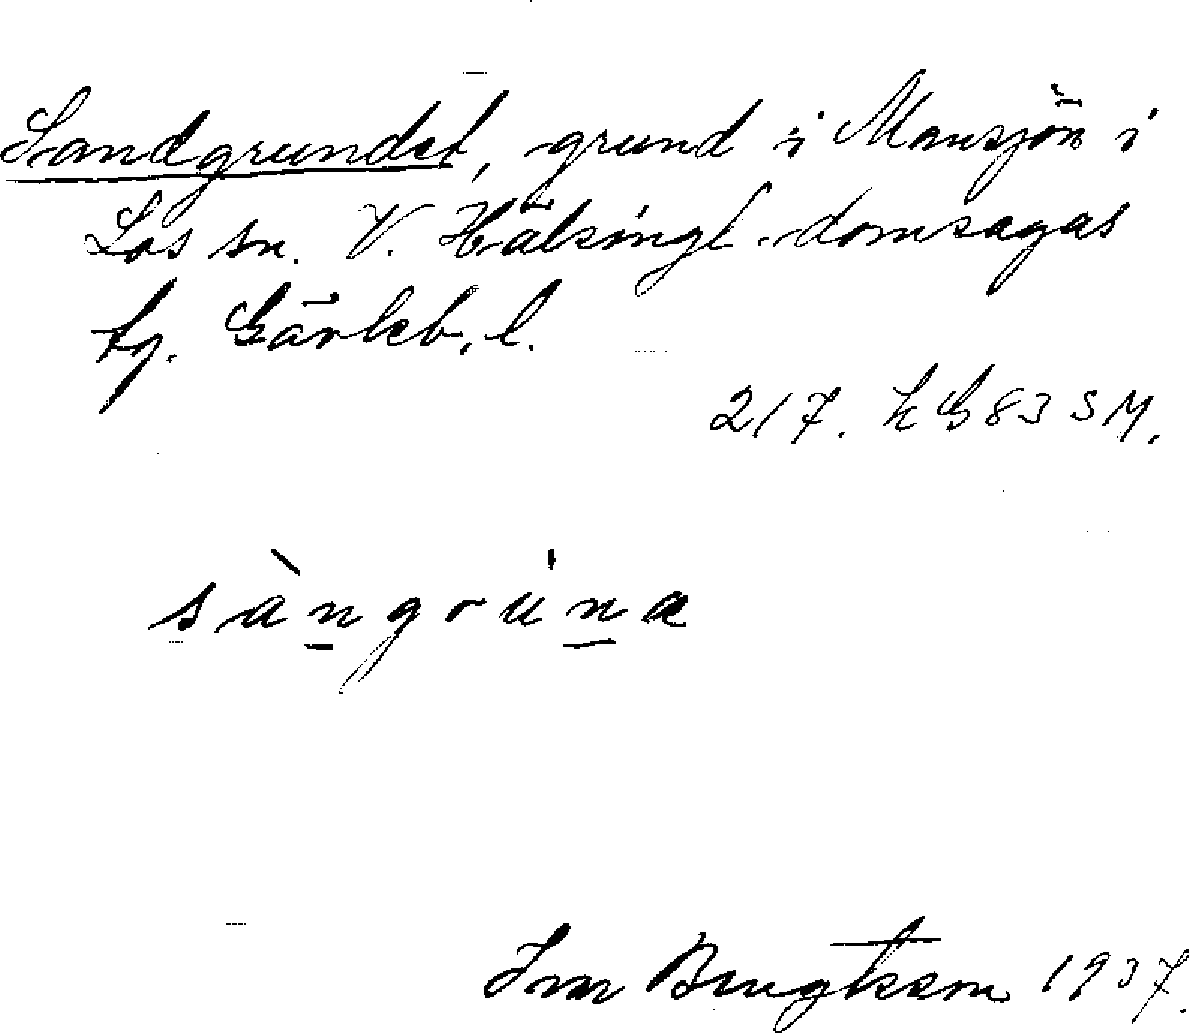 Sandgrundet, grund i Mansjön i
Los sn. V. Hälsingl. domsagas
tg. Gävleb. l.
217. LG 83 SM.
sàngrúna
Ivar Bengtsson 1937.